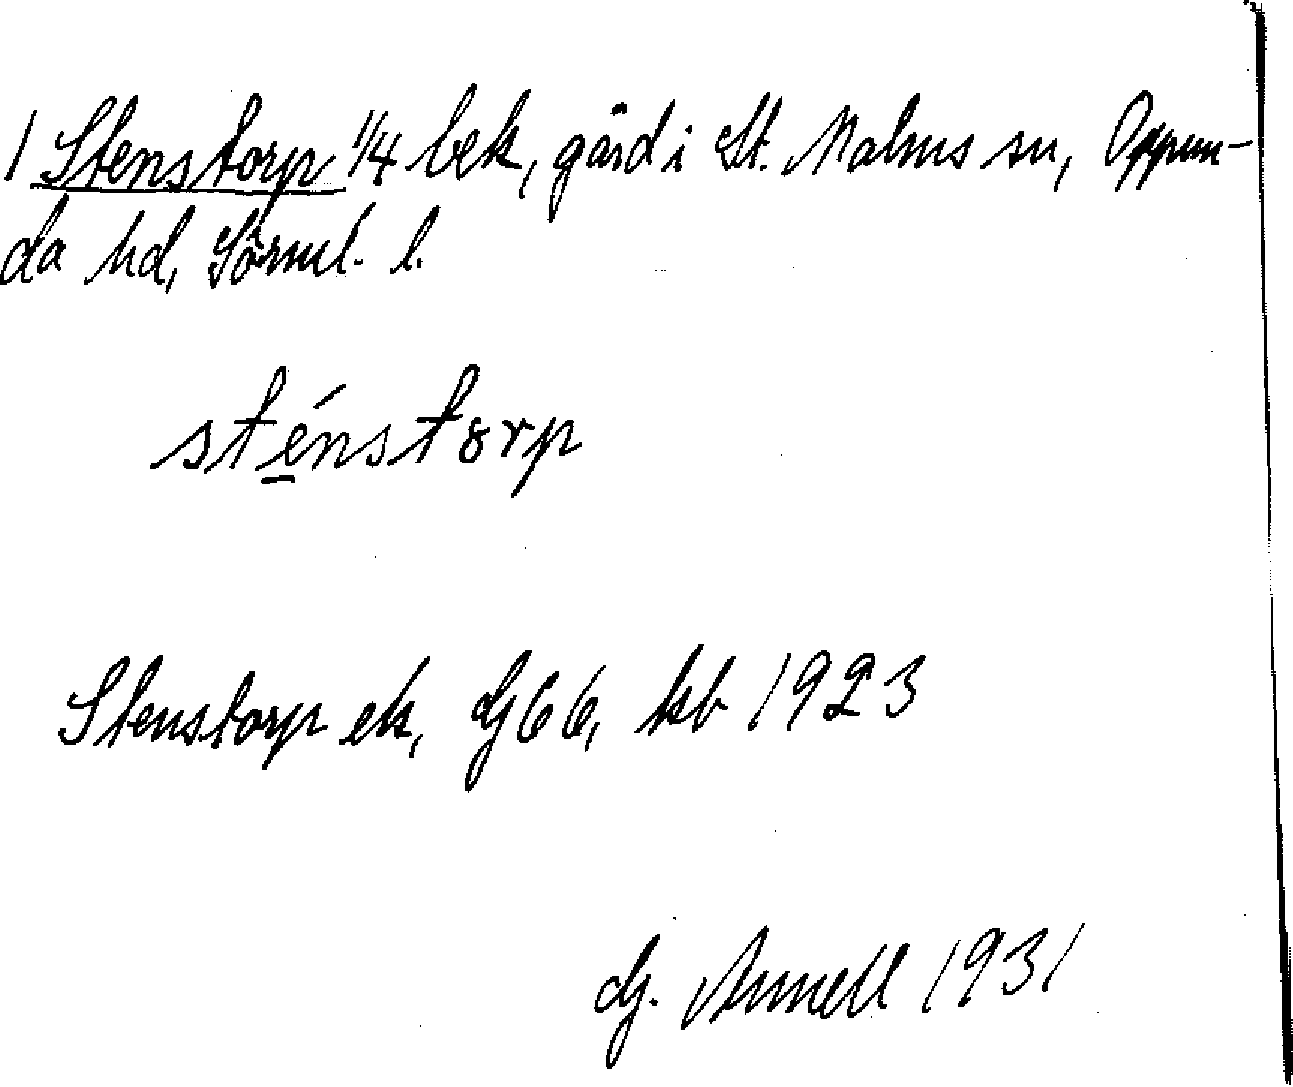 1 Stenstorp 1/4 bek, gård i St. Malms sn, Oppun-
da hd, Sörml. l.
sténstorp
Stenstorp ek, GJ 66, kb 1923
G. Annell 1931